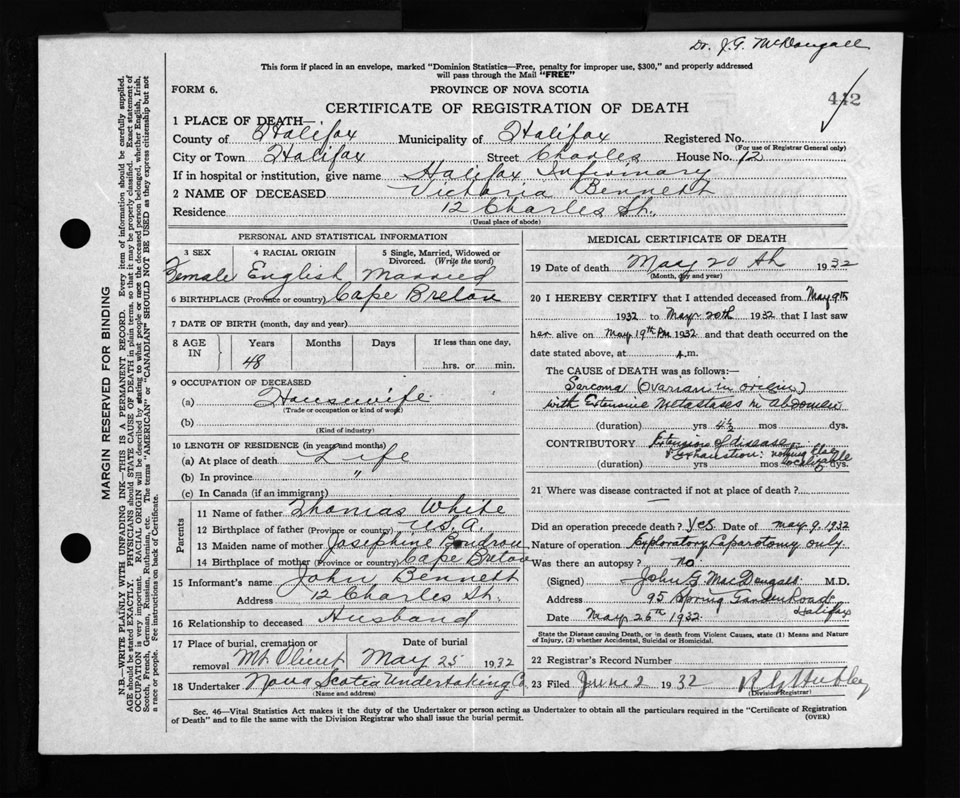 Dr. J.G. McDougall
This form if placed in an envelope, marked "Dominion Statistics—Free, penalty for improper use, $300," and properly addressed
will pass through the Mail "FREE"
FORM 6.
PROVINCE OF NOVA SCOTIA
442
CERTIFICATE OF REGISTRATION OF DEATH
1 PLACE OF DEATH—
County of Halifax Municipality of Halifax Registered No.
(For use of Registrar General only)
City or Town Halifax Street Charles House No. 12
If in hospital or institution, give name Halifax Infirmary
2 NAME OF DECEASED Victoria Bennett
Residence 12 Charles St.
(Usual place of abode)
PERSONAL AND STATISTICAL INFORMATION
3 SEX 4 RACIAL ORIGIN 5 Single, Married, Widowed or Divorced. (Write the word)
Female English Married
6 BIRTHPLACE (Province or country) Cape Breton
7 DATE OF BIRTH (month, day and year)
8 AGE IN Years Months Days If less than one day,
48 hrs. or min.
9 OCCUPATION OF DECEASED
(a) Housewife
(Trade or occupation or kind of work)
(b)
(Kind of industry)
10 LENGTH OF RESIDENCE (in years and months)
(a) At place of death Life
(b) In province "
(c) In Canada (if an immigrant)
Parents
11 Name of father Thomas White
12 Birthplace of father (Province or country) U.S.A.
13 Maiden name of mother Josephine Boudrou
14 Birthplace of mother (Province or country) Cape Breton
15 Informant's name John Bennett
Address 12 Charles St.
16 Relationship to deceased Husband
17 Place of burial, cremation or removal Date of burial
Mt. Olivet May 25 1932
18 Undertaker Nova Scotia Undertaking Co
(Name and address)
MEDICAL CERTIFICATE OF DEATH
19 Date of death May 20 th 1932
(Month, day and year)
20 I HEREBY CERTIFY that I attended deceased from May 9th
1932 to May 20th 1932 that I last saw
her alive on May 19th PM 1932 and that death occurred on
date stated above, at A.m.
The CAUSE of DEATH was as follows:—
Sarcoma (Ovarian in origin)
with Extensive Metastases in Abdomen
(duration) yrs 4½ mos. dys.
CONTRIBUTORY Extension of disease
& Exhaustion: nothing else localizable
(duration) yrs mos dys.
21 Where was disease contracted if not at place of death?
Did an operation precede death? Yes Date of May 9. 1932
Nature of operation Exploratory Laparotomy only.
Was there an autopsy? no
(Signed) John G. MacDougall M.D.
Address 95 Spring Garden Road
Halifax
Date May 26th 1932
State the Disease causing Death, or in death from Violent Causes, state (1) Means and Nature
of Injury, (2) whether Accidental, Suicidal or Homicidal.
22 Registrar's Record Number
23 Filed June 2 1932
(Division Registrar)
Sec. 46—Vital Statistics Act makes it the duty of the Undertaker or person acting as Undertaker to obtain all the particulars required in the "Certificate of Registration
of Death" and to file the same with the Division Registrar who shall issue the burial permit.
(OVER)
MARGIN RESERVED FOR BINDING
N.B.—WRITE PLAINLY WITH UNFADING INK—THIS IS A PERMANENT RECORD. Every item of information should be carefully supplied.
AGE should be stated EXACTLY. PHYSICIANS should STATE CAUSE OF DEATH in plain terms, so that it may be properly classified. Exact statement of
OCCUPATION is very important. RACIAL ORIGIN will be described by stating to what people or race the deceased person belonged, whether English, Irish,
Scotch, French, German, Russian, Ruthenian, etc. The terms "AMERICAN" or "CANADIAN" SHOULD NOT BE USED as they express citizenship but not
a race or people. See instructions on back of Certificate.